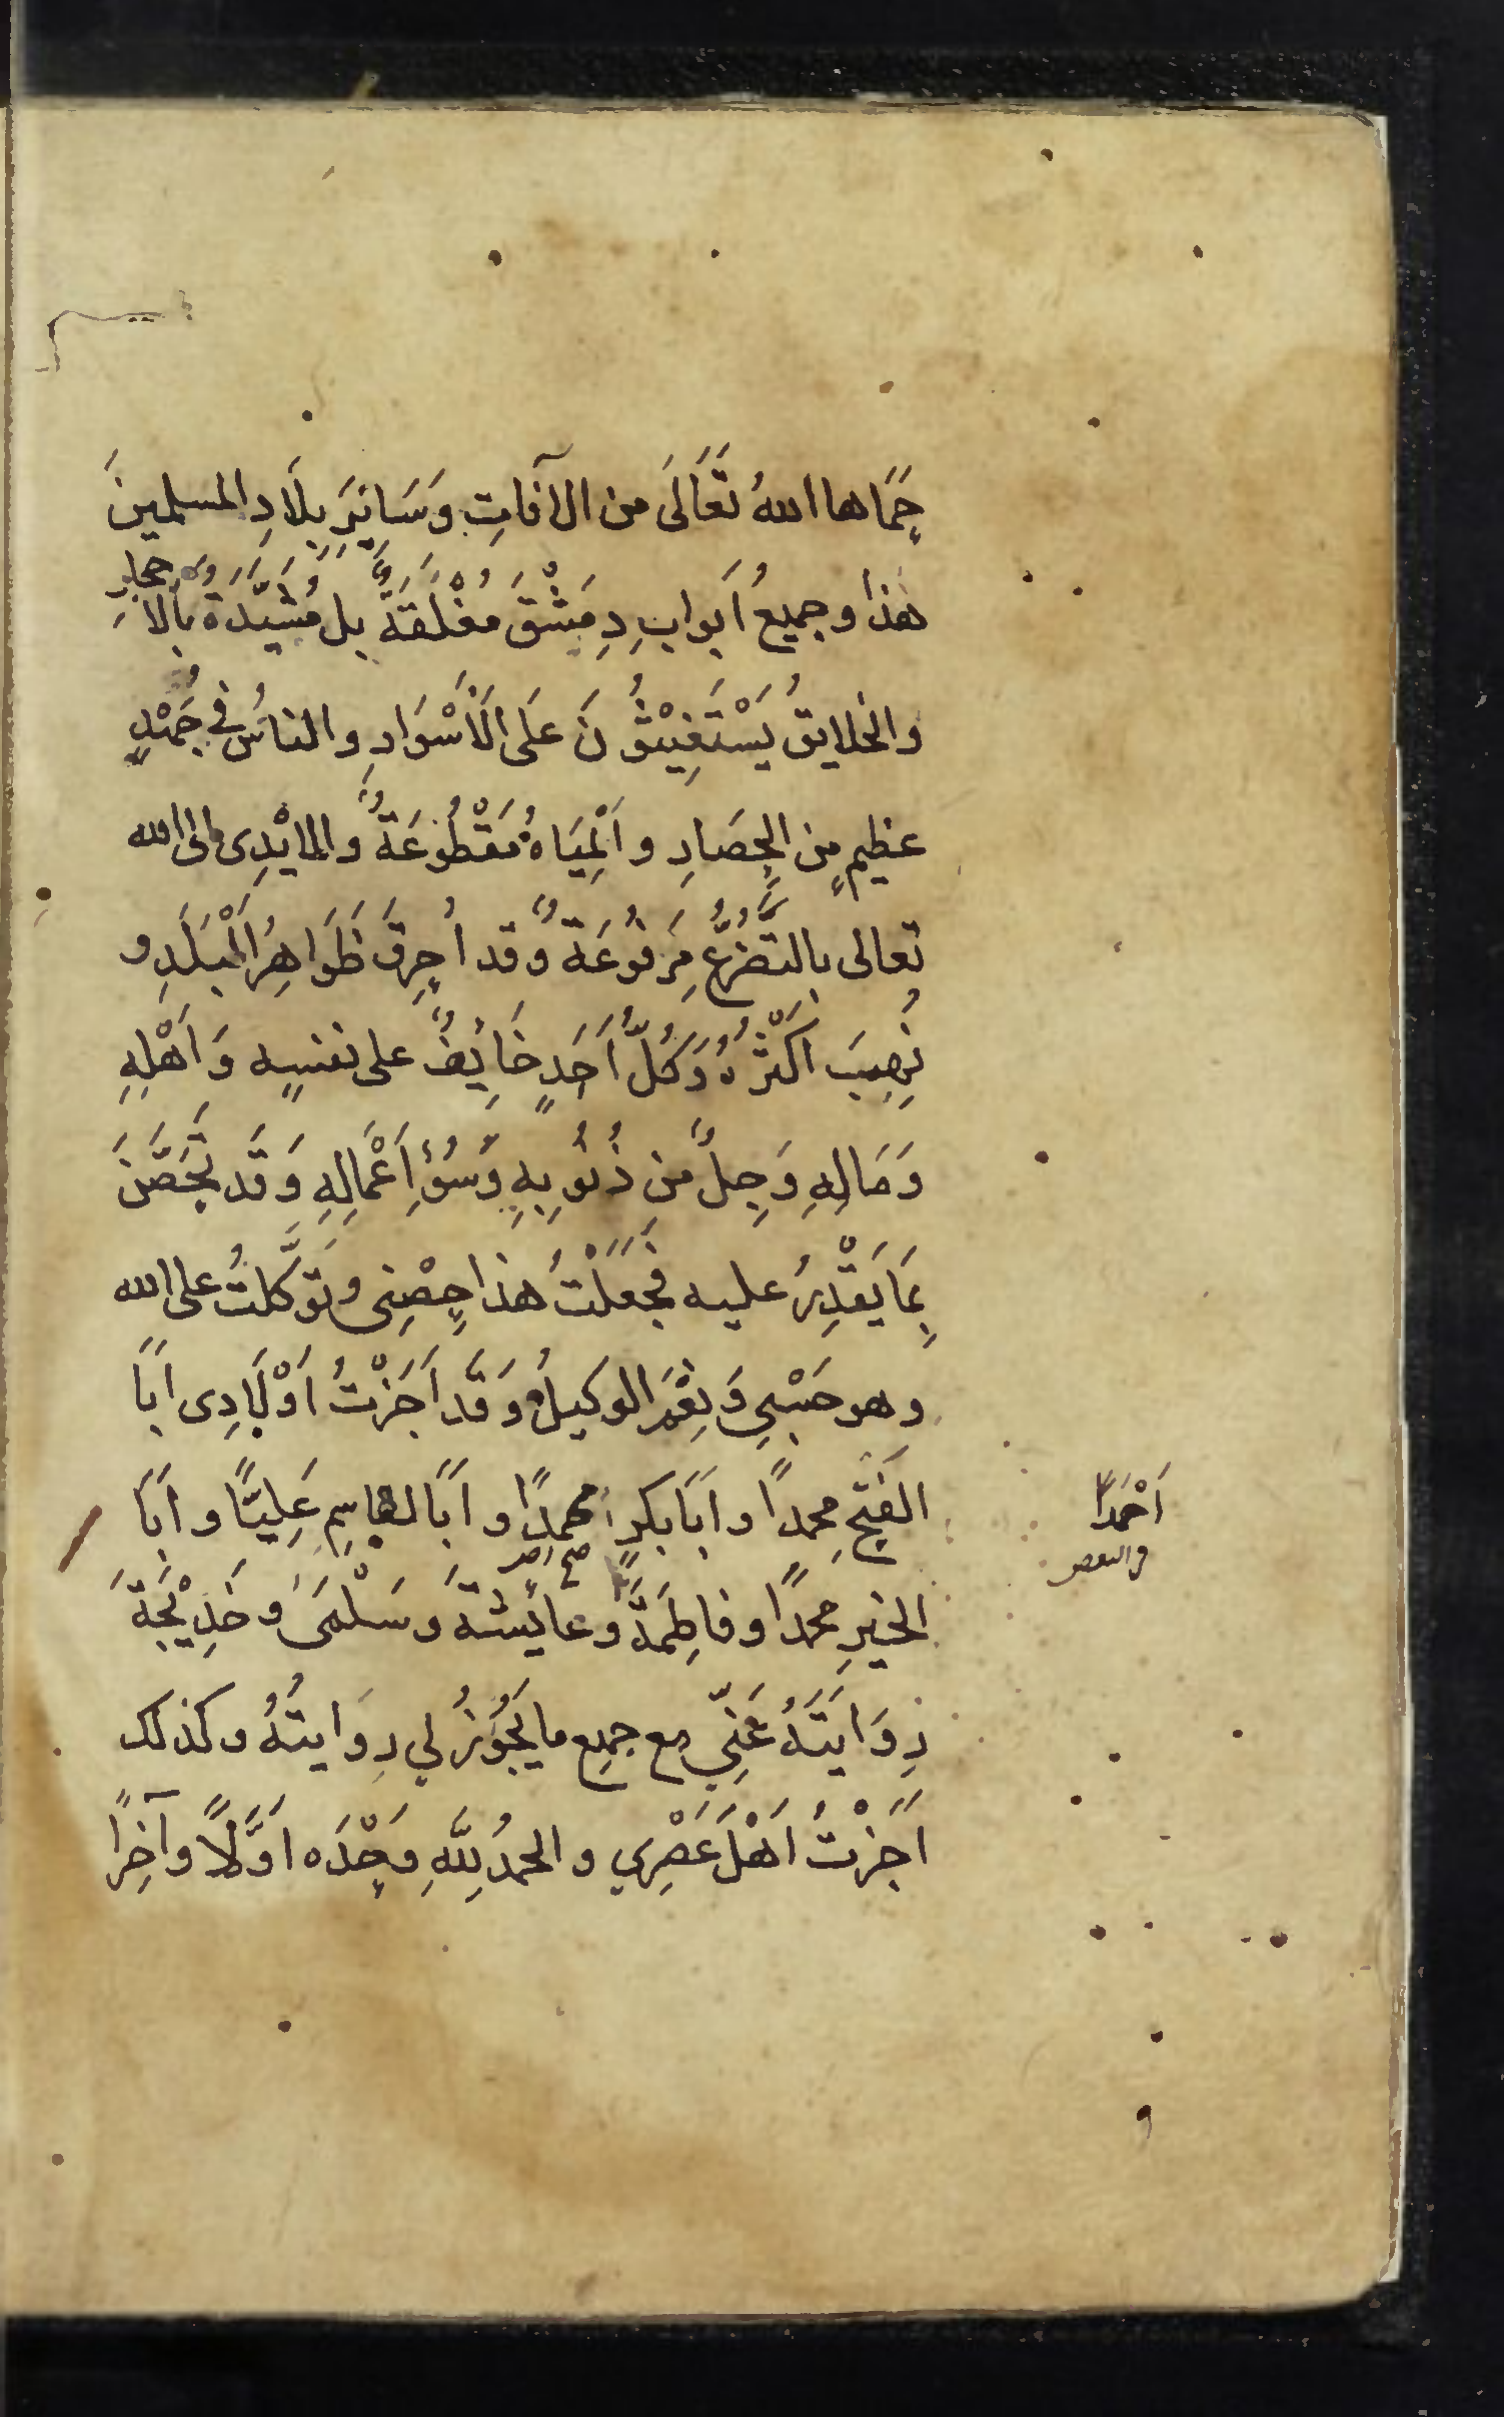 حِمَاها اللهُ تَعَالَى من الآفاتِ وَسَايِرَ بِلَادِ المسلمينَ
هذا وجميعُ أبوابِ دِمَشْقَ مُغْلَقَةٌ بل مُشَيَّدَةٌ بالأحجارِ
والخلايقُ يَسْتَغِيْثُونَ عَلَى الأَسْوَارِ والناسُ في جُهْدٍ
عظيمٍ من الحِصَارِ والْمِيَاهُ مَقْطُوعَةٌ والأيْدِى إلى الله
تعالى بالتَّضَرُّعِ مَرفُوعَةٌ وقد أُحرِقَ ظَوَاهِرُ الْبَلَدِ و
نُهِبَ أَكْثَرُهُ وَكُلُّ أَحَدٍ خَايِفٌ على نفسِهِ وَأَهْلِهِ
وَمَالِهِ وَجِلٌ مِن ذُنُوبِهِ وَسُوْءِ أَعْمَالِهِ وَقَد تَحَصَّنَ
بِمَا يَقْدِرُ عليه فجَعَلْتُ هذا حِصْنِى وتوَكَّلتُ على الله
وهو حَسْبِي وَنِعْمَ الوكيلُ وَقَد أَجَزْتُ أَوْلَادِى أبَا
الفَتْحِ محمدًا وأبَا بكرٍ محمدًا وأبَا القاسِمِ عَلِيًّا وأبَا
أَحْمَدًا
الخيرِ محمدًا وفاطِمَةَ وعايشةَ وَسَلْمَى وخَدِيْجَةَ
رِوَايَتَهُ عَنِّي مع جميع ما يَجُوْزُ لي رِوَايتُهُ وكذلك
أَجَزْتُ أَهْلَ عَصْرِي والحمدُ لِلَّهِ وَحْدَه أَوَّلًا وآخِرًا